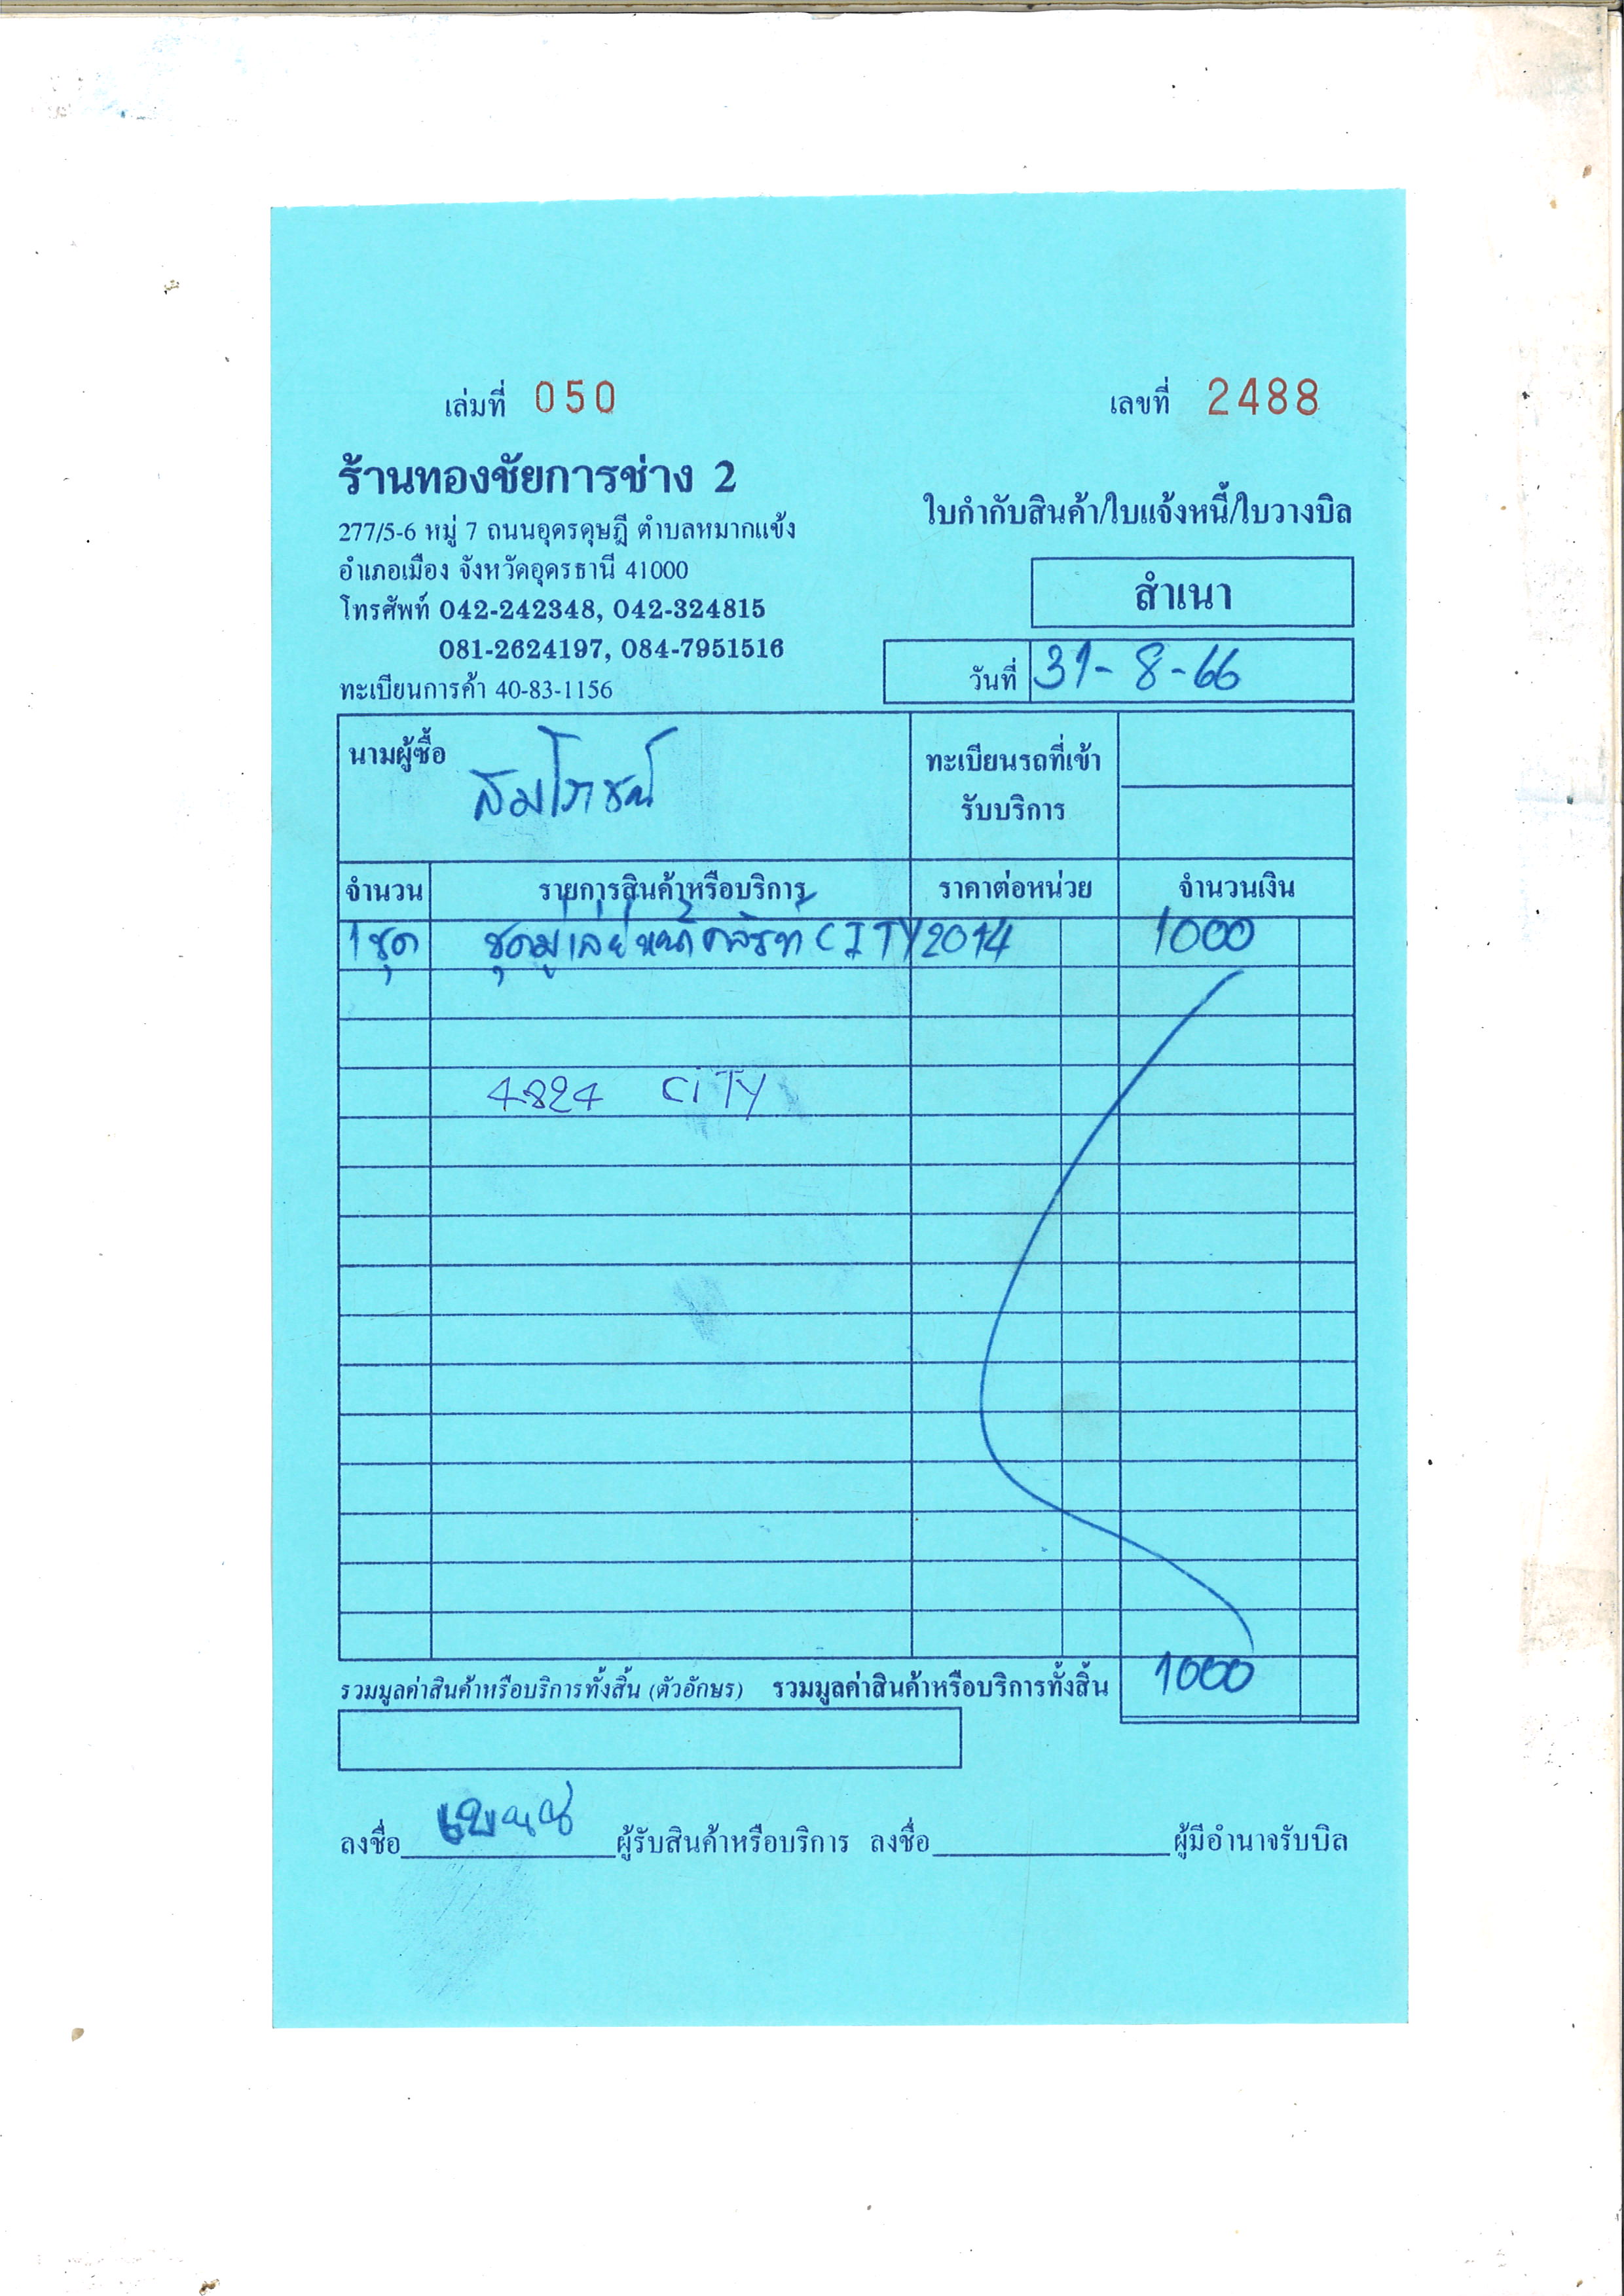 เล่มที่ 050 เลขที่ 2488
ร้านทองชัยการช่าง 2
277/5-6 หมู่ 7 ถนนอุดรดุษฎี ตำบลหมากแข้ง
อำเภอเมือง จังหวัดอุดรธานี 41000
โทรศัพท์ 042-242348, 042-324815
081-2624197, 084-7951516
ทะเบียนการค้า 40-83-1156
ใบกำกับสินค้า/ใบแจ้งหนี้/ใบวางบิล
สำเนา
วันที่ 31-8-66
นามผู้ซื้อ สมโภชณ์
ทะเบียนรถที่เข้า
รับบริการ
จำนวน รายการสินค้าหรือบริการ ราคาต่อหน่วย จำนวนเงิน
1 ชุด ชุดมู่เล่ย์หน้าคลัชท์ CITY 2014 1000
4824 CITY
รวมมูลค่าสินค้าหรือบริการทั้งสิ้น (ตัวอักษร) รวมมูลค่าสินค้าหรือบริการทั้งสิ้น 1000
ลงชื่อ ผู้รับสินค้าหรือบริการ ลงชื่อ ผู้มีอำนาจรับบิล